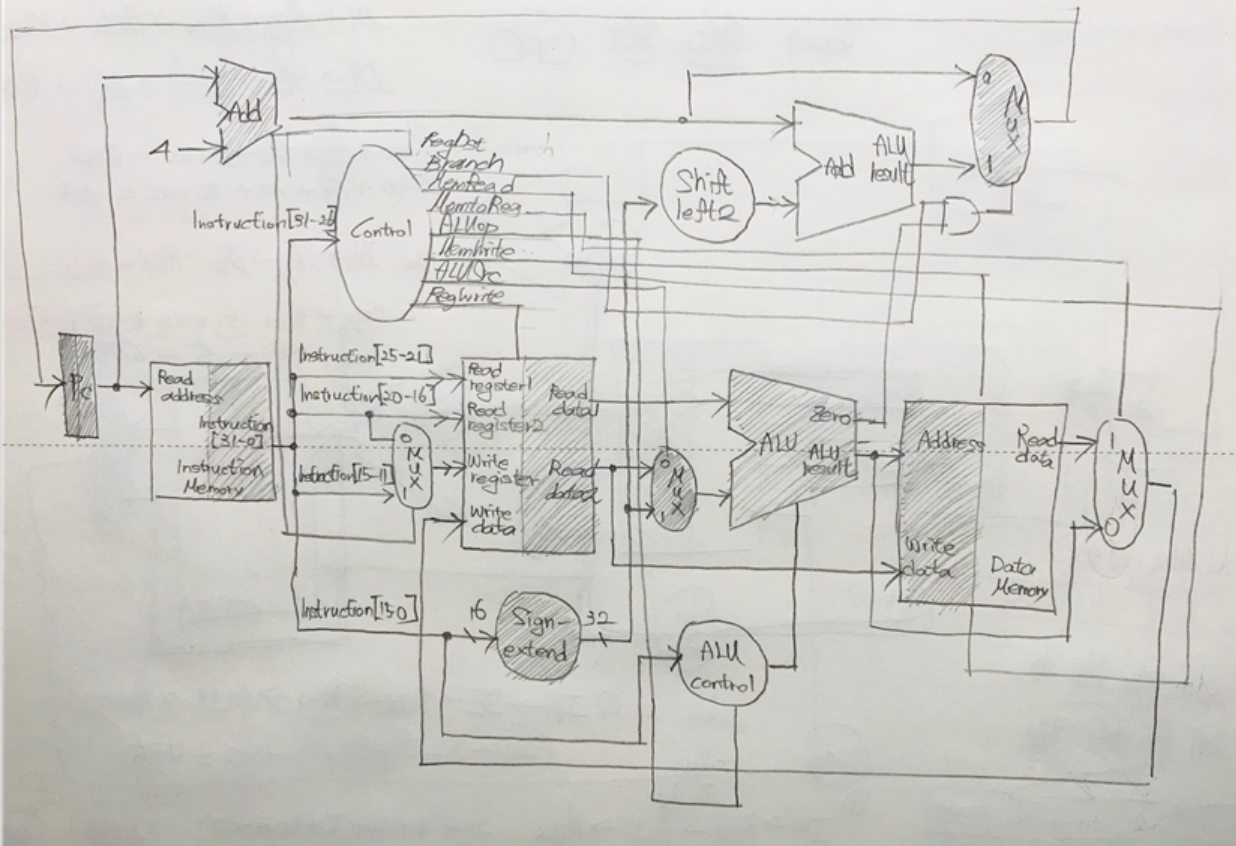 Add
4
RegDst
Branch
MemRead
MemtoReg
ALUop
MemWrite
ALUSrc
RegWrite
Control
Instruction[31-26]
Shift
left2
Add
ALU
result
0
Mux
1
PC
Read
address
Instruction
[31-0]
Instruction
Memory
Instruction[25-21]
Instruction[20-16]
Instruction[15-11]
0
Mux
1
Read
register1
Read
register2
Write
register
Write
data
Read
data1
Read
data2
0
Mux
1
Zero
ALU
ALU
result
Address
Read
data
Write
data
Data
Memory
1
Mux
0
Instruction[150]
16
Sign-
extend
32
ALU
control